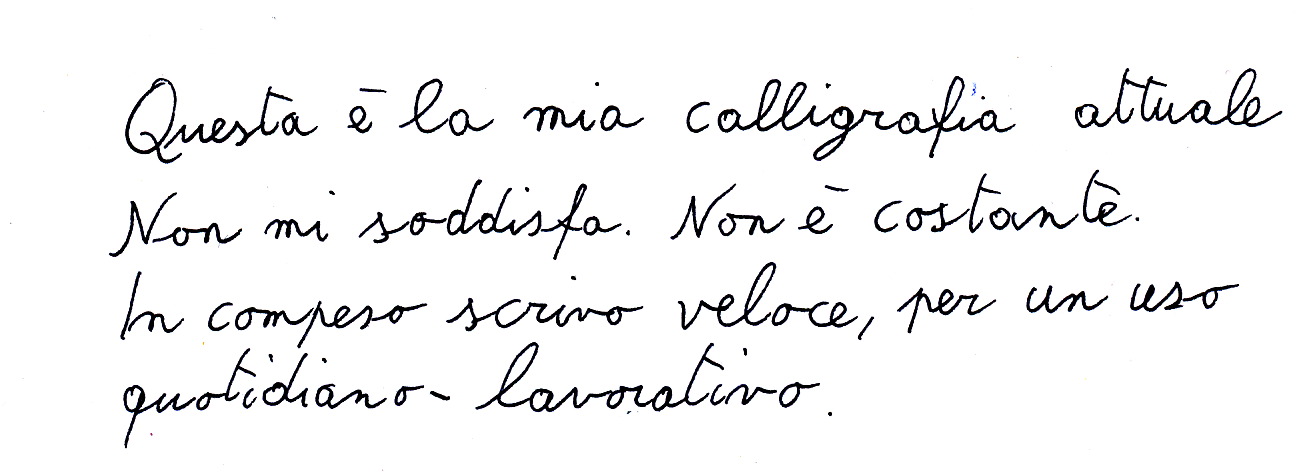 Questa è la mia calligrafia attuale
Non mi soddisfa. Non è costante.
In compeso scrivo veloce, per un uso
quotidiano - lavorativo.